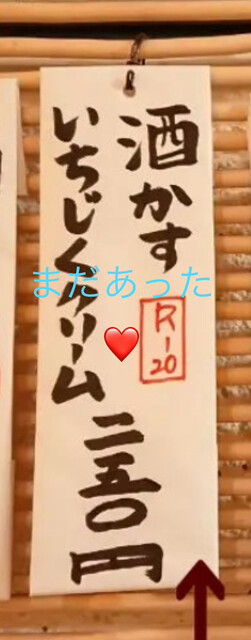 酒かす
R-20
いちじくクリーム
二五〇円
まだあった